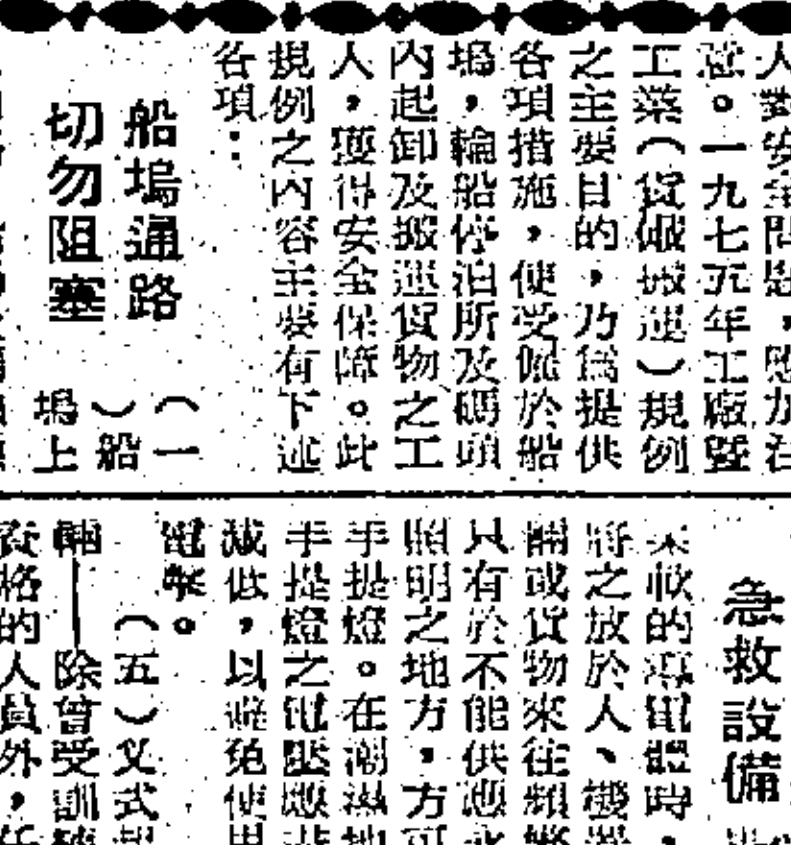 人對安全問題，應加注
意。一九七五年工廠暨
工業（貨艙搬運）規例
之主要目的，乃爲提供
各項措施，使受僱於船
塢，輪船停泊所及碼頭
內起卸及搬運貨物之工
人，獲得安全保障。此
規例之內容主要有下述
各項：
船塢通路
切勿阻塞
（一
）船
塢上
急救設備
柔軟的導電體時，
將之放於人、機器
輛或貨物來往頻繁
只有於不能供應永
照明之地方，方可
手提燈。在潮濕地
手提燈之電壓應
減低，以避免使用
電擊。
（五）叉式起
輛——除曾受訓練
資格的人員外，任